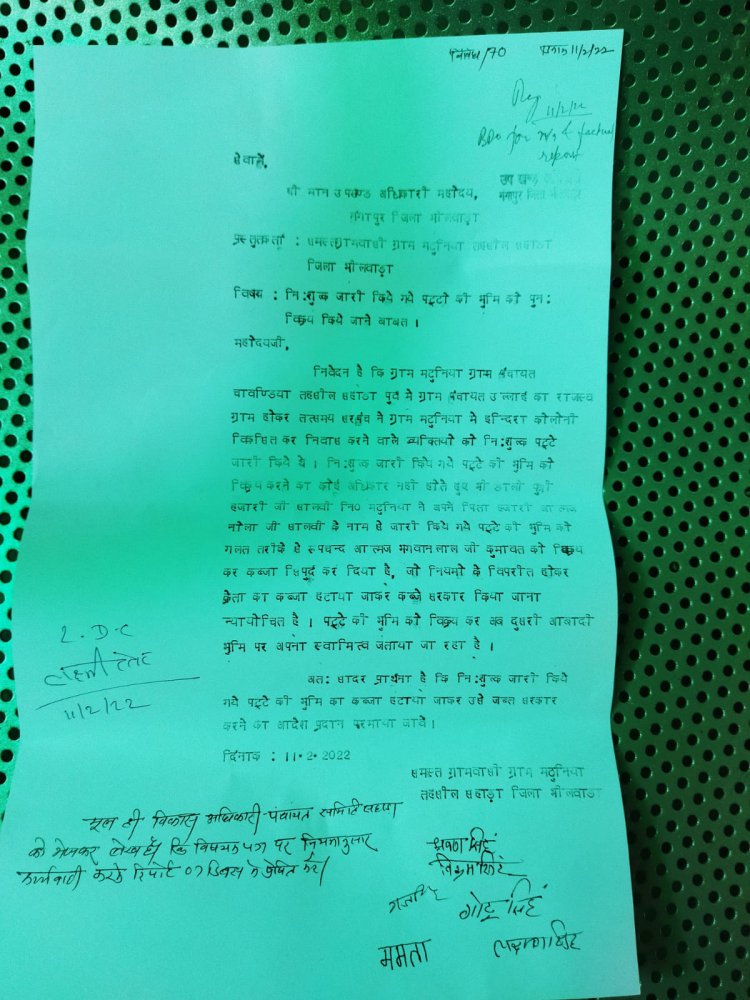 विविध/70 दिनांक 11/2/22
Reg
11/2/22
BDO for N/A & factual
report
सेवामें,
उप खण्ड
श्री मान उपखण्ड अधिकारी महोदय,
गंगापुर जिला भीलवाड़ा
गंगापुर जिला भीलवाड़ा
प्रस्तुतकर्ता : समस्तग्रामवासी ग्राम मटुनिया तहसील सहाडा
जिला भीलवाड़ा
विषय : नि:शुल्क जारी किये गये पट्टो की भुमि को पुन:
विक्रय किये जाने बाबत ।
महोदयजी,
निवेदन है कि ग्राम मटुनिया ग्राम पंचायत
चावण्डिया तहसील सहाडा पुर्व मे ग्राम पंचायत उल्लाई का राजस्व
ग्राम होकर तत्समय सरपंच ने ग्राम मटुनिया मे इन्दिरा कोलोनी
विकसित कर निवास करने वाले व्यक्तियो को नि:शुल्क पट्टे
जारी किये थे । नि:शुल्क जारी किये गये पट्टे की भुमि को
विक्रय करने का कोई अधिकार नही होते हुए भी डाली पुत्री
हजारी जी सालवी नि0 मटुनिया ने अपने पिता हजारी आत्मज
नोला जी सालवी के नाम से जारी किये गये पट्टे की भुमि को
गलत तरीके से रुपचन्द आत्मज भगवानलाल जी कुमावत को विक्रय
कर कब्जा सिपुर्द कर दिया है, जो नियमो के विपरीत होकर
क्रेता का कब्जा हटाया जाकर कब्जे सरकार किया जाना
न्यायोचित है । पट्टे की भुमि को विक्रय कर अब दुसरी आबादी
भुमि पर अपना स्वामित्व जताया जा रहा है ।
अत: सादर प्रार्थना है कि नि:शुल्क जारी किये
गये पट्टे की भुमि का कब्जा हटाया जाकर उसे जब्त सरकार
करने का आदेश प्रदान फरमाया जावे ।
L.D.C
11/2/22
दिनांक : 11.2.2022
समस्त ग्रामवासी ग्राम मटुनिया
तहसील सहाड़ा जिला भीलवाडा
मूल ही विकास अधिकारी पंचायत समिति सहाडा
को भेजकर लेख है कि विषयक पत्र पर नियमानुसार
कार्यवाही करके रिपोर्ट 07 दिवस मे प्रेषित करें
श्रवण सिंह
विक्रम सिंह
गोटू सिंह
ममता लक्ष्मण सिंह